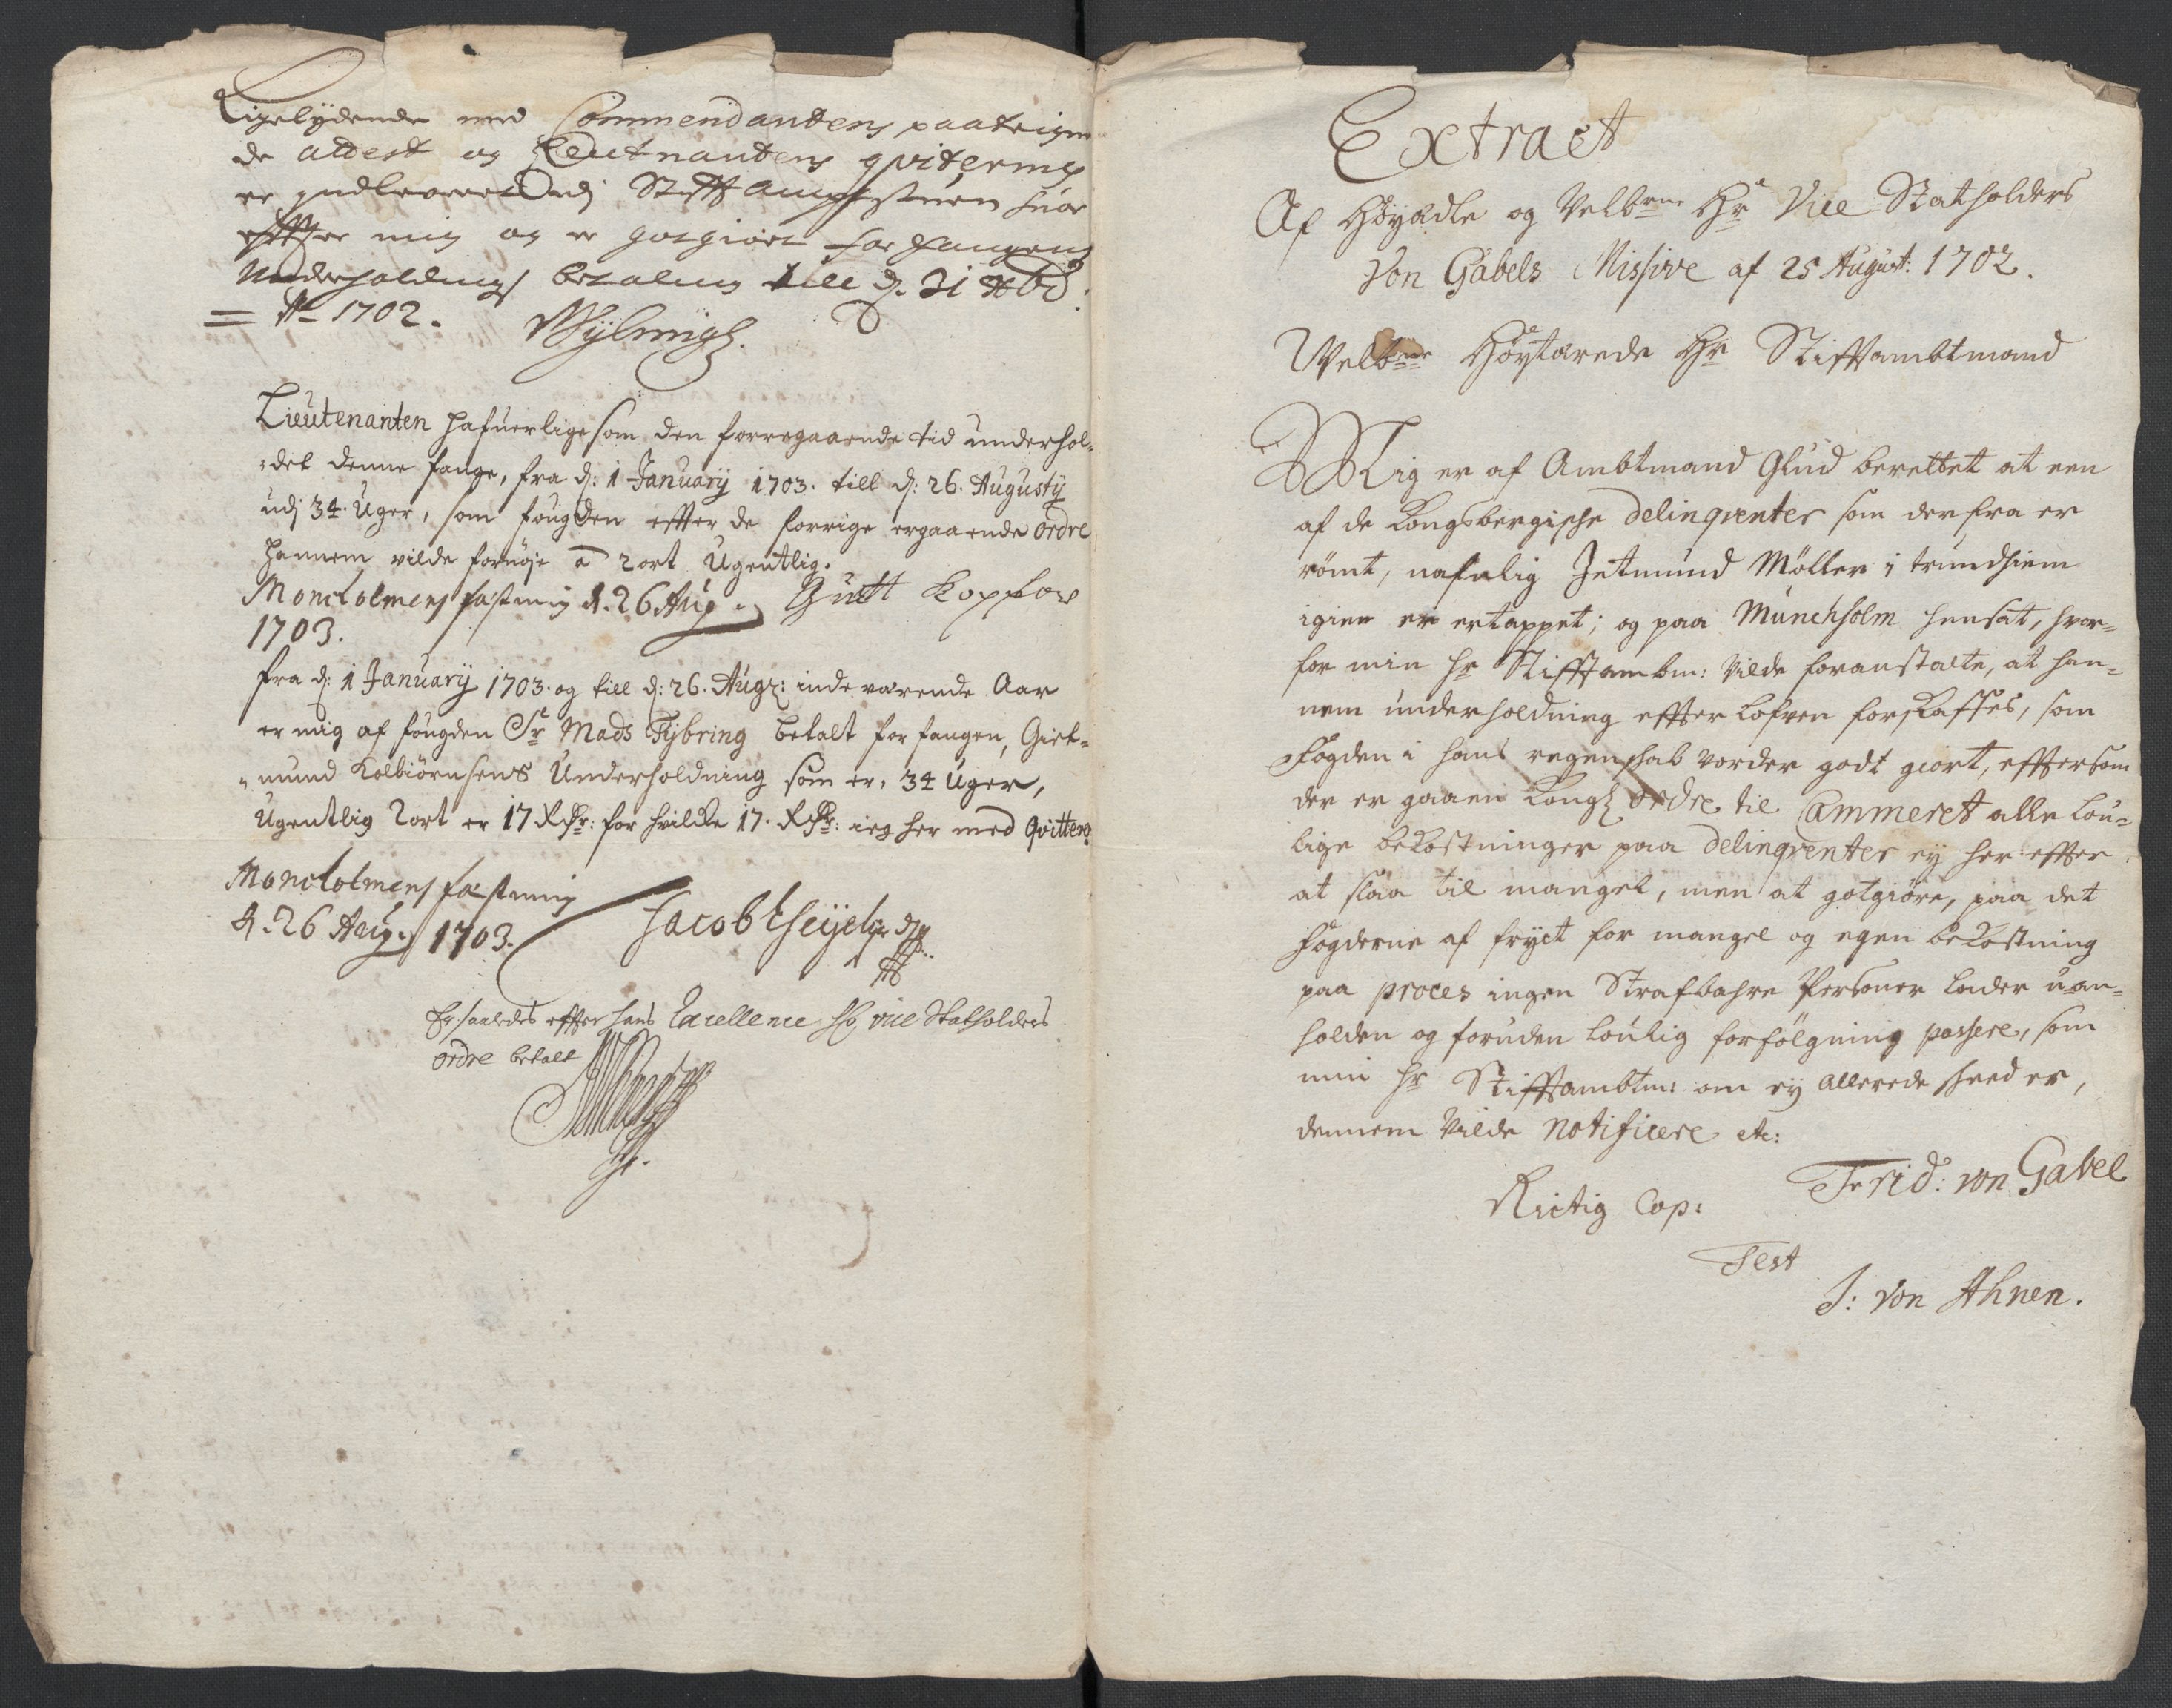 Ligelydende med Commendantens paateigne
de attest og Leutnantens qvitering
er indleveret udj Stifft Ampt stuen huor
effter mig og er gotgiort for fangens
Underholdnings betaling till d. 31 Xbr:
= Ao 1702.
Lieutenanten hafuer ligesom den forregaaende tid underhol-
-det denne fange, fra d: 1 Januarÿ 1703. till d: 26. Augustÿ
udj 34. Uger, som fougden effter de forrige ergaaende ordre
hannem vilde fornøje a 2 ort Ugentlig.
Moncholmens fæstning d. 26 Aug:
1703.
fra d: 1 Januarÿ 1703. og till d: 26. Aug: indeværende Aar
er mig af fougden Sr Mads Fÿbring betalt for fangen, Giet-
-mund Kolbiørnsens Underholdning som er, 34 Uger,
Ugentlig 2 ort er 17 Rdr: for hvilcke 17. Rdr: ieg her med qvitterer
Moncholmens fæstning
d. 26 Aug: 1703.
Er saaledes effter hans Excellence Hr vice Statholders
ordre betalt
Extract
Af Høyædle og Velbrne Hr Vice Statholders
Von Gabels Missive af 25 August: 1702.
Velbrne Høystærede Hr Stifftambtmand
Mig er af Ambtmand Glud berettet at een
af de Kongsbergische delinqventer som derfra er
römt, nafnlig Jetmund Møller i trundhiem
igien er ertappet; og paa Munchholm hensat, hvor-
for min Hr Stifftambm: vilde foranstalte, at han-
nem underholdning effter Lofven forskaffes, som
Fogden i hans regenskab vorder godt giort, effter som
der er gaaen Kongl ordre til Cammeret alle lou-
lige bekostninger paa delinqventer ej her effter
at slaa til mangel, men at gotgiøre, paa det
fogderne af fryct for mangel og egen bekostning
paa proces ingen Strafbahre Personer lader u-an-
holden og foruden loulig forfölgning passere, som
min Hr Stifftambtm: om ej allerede skeed er,
dennem vilde notificere etc:
Frid: von Gabel
Rictig Cop:
Test
J: von Ahnen.